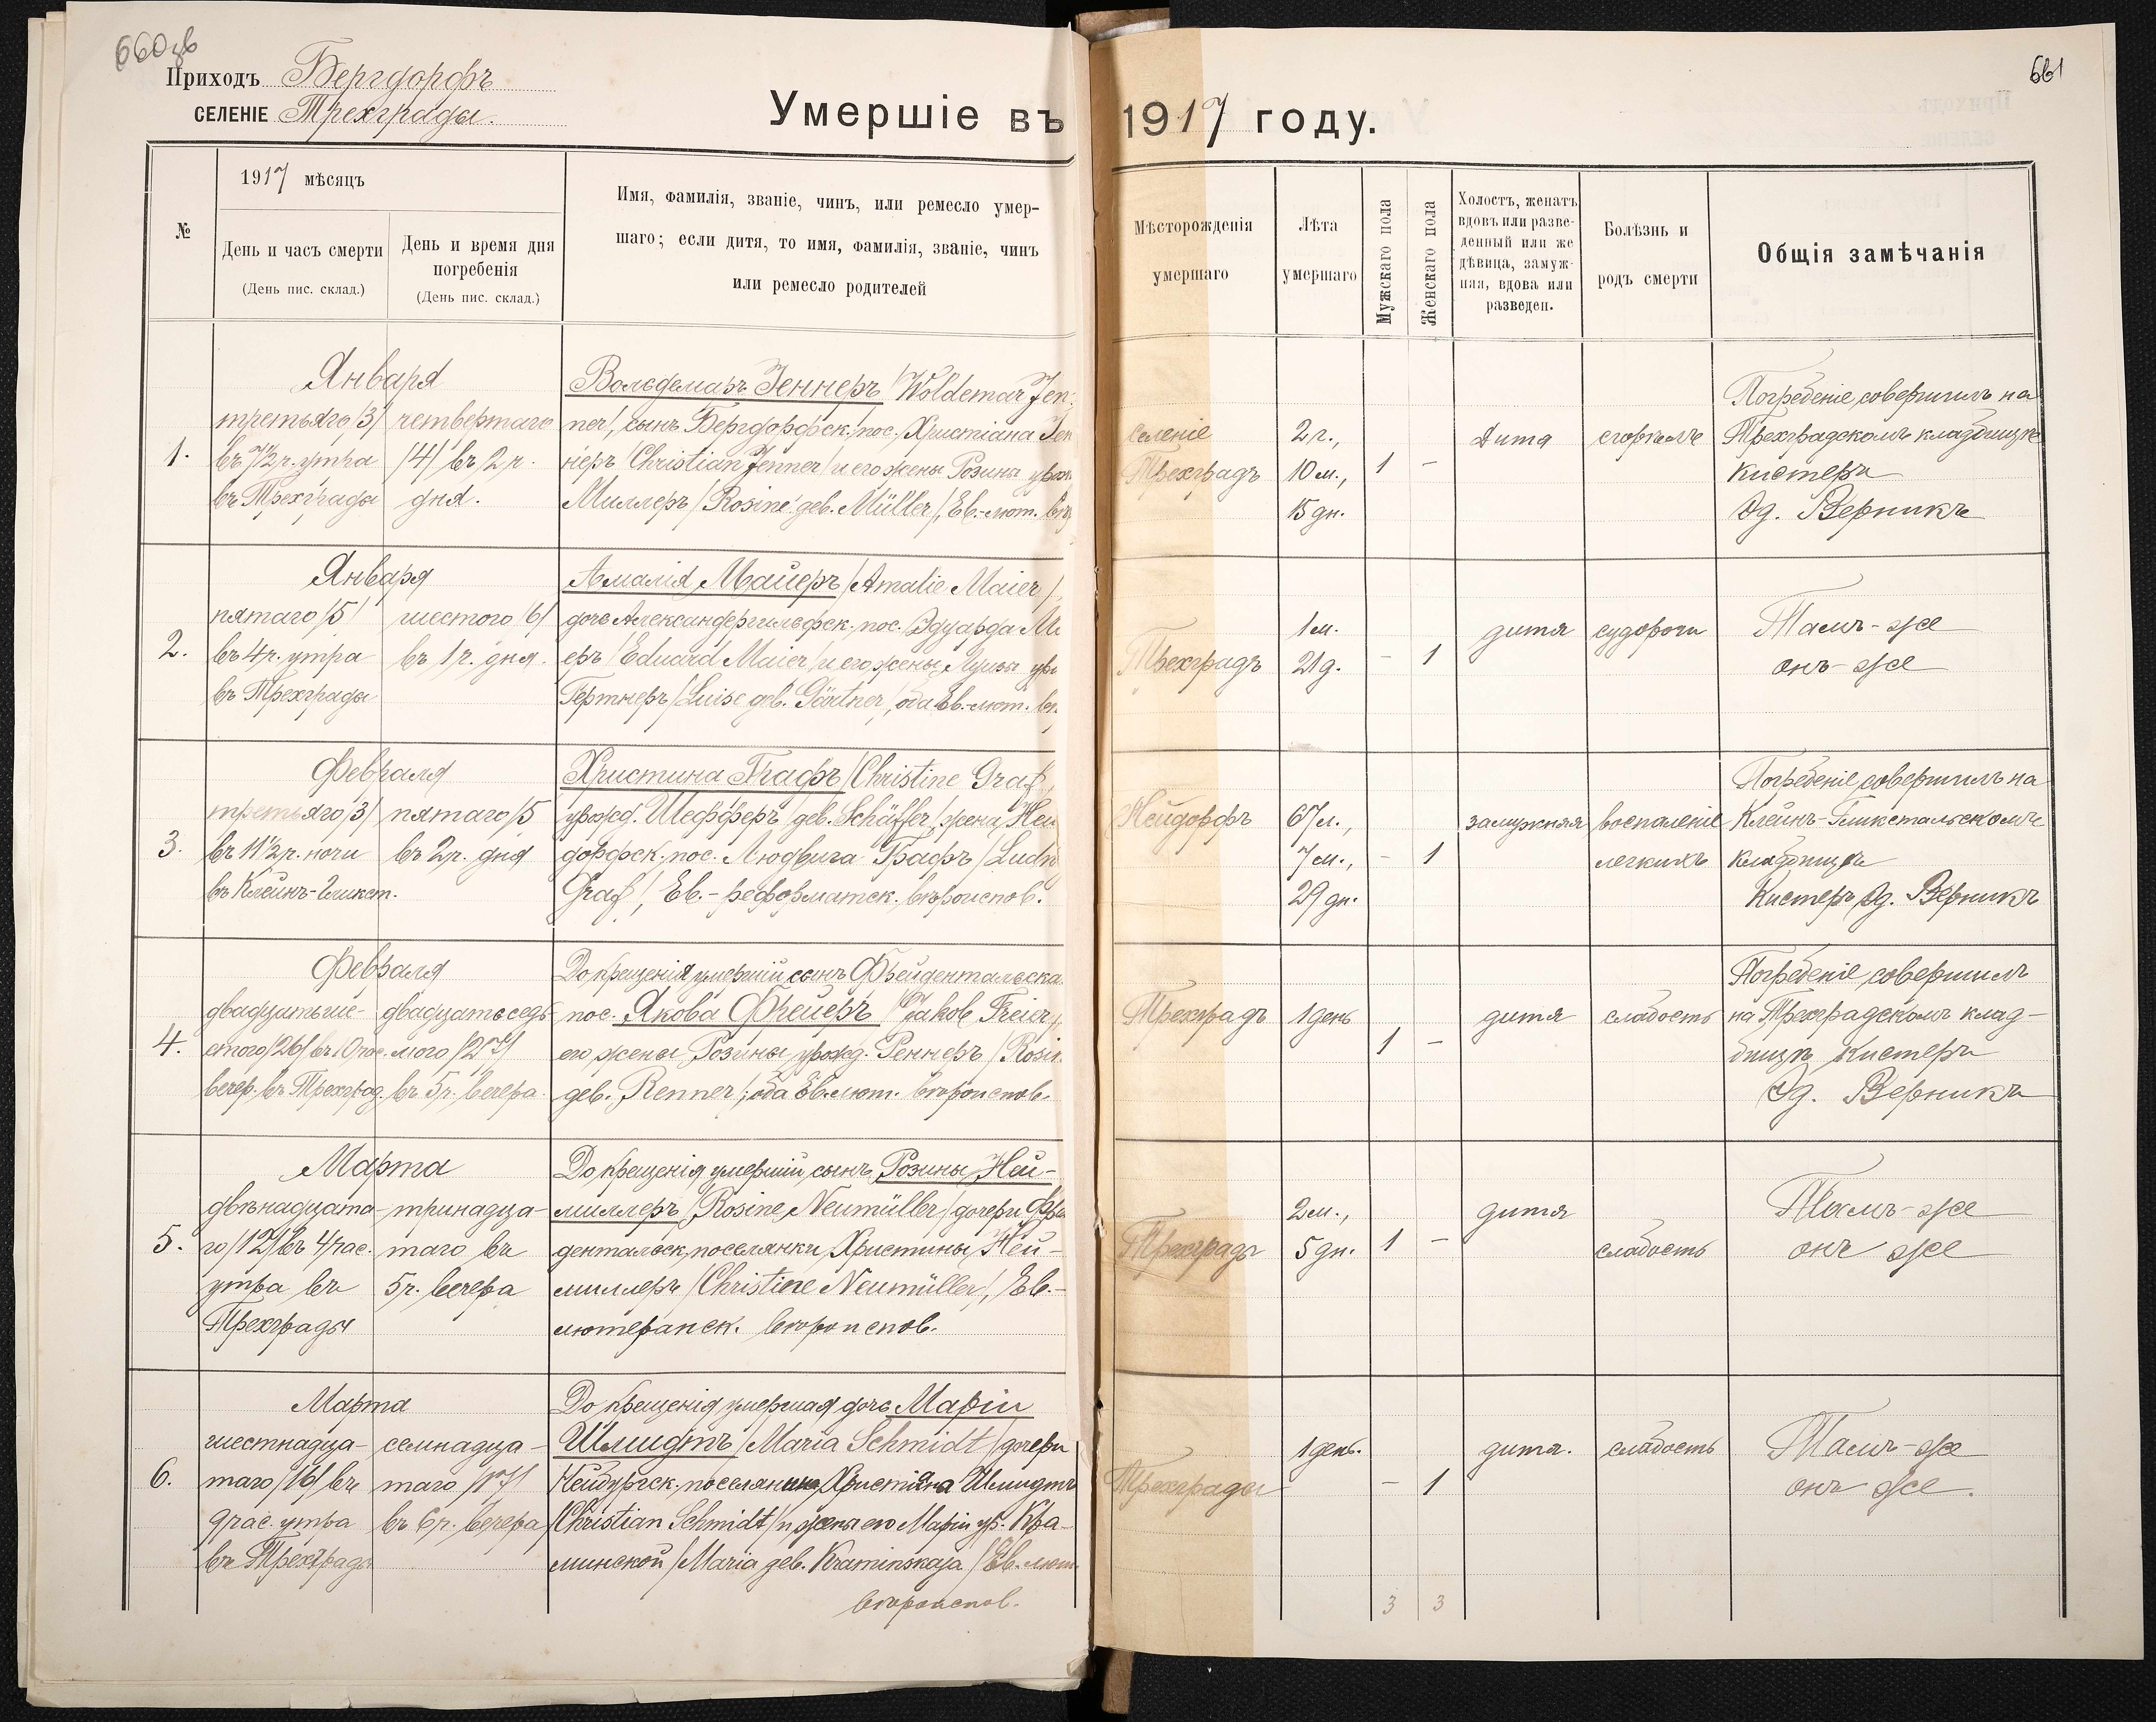 660зв
Приходъ Бергдорфъ
СЕЛЕНІЕ Трехграды.
661
Умершіе въ 1917 году.
№
1917 мѣсяцъ
День и часъ смерти
(День пис. склад.)
День и время дня
погребенія
(День пис. склад.)
Имя, фамилія, званіе, чинъ, или ремесло умер-
шаго; если дитя, то имя, фамилія, званіе, чинъ
или ремесло родителей
Мѣсторожденія
умершаго
Лѣта
умершаго
Мужскаго пола
Женскаго пола
Холостъ, женатъ
вдовъ или разве-
денный или же
дѣвица, замуж-
няя, вдова или
разведен.
Болѣзнь и
родъ смерти
Общія замѣчанія
1.
Января
третьяго /3/
въ 7½ г. утра
въ Трехграды
четвертаго
/4/ въ 2 ч.
дня.
Вольдемаръ Геннеръ /Woldemar Jen-
ner/, сынъ Бергдорфск. пос. Христіана Ген
неръ /Christian Jenner/ и его жены Розина урож
Миллеръ /Rosine geb. Müller/, Ев.-лют.
селеніе
Трехградъ
2 г.,
10 м.,
15 дн.
1
-
дитя
Погребеніе совершилъ на
Трехградскомъ кладбищѣ
кистеръ
Эд. Верникъ
2.
Января
пятаго /5/
въ 4 ч. утра
въ Трехграды
шестого /6/
въ 1 ч. дня.
Амалія Майеръ /Amalie Maier/,
дочь Александергильфск. пос. Эдуарда М
еръ /Eduard Maier/ и его жены Луизы ур
Гертнеръ /Luise geb. Gärtner/, оба Ев.-лют.
Трехградъ
1 м.
21 д.
-
1
дитя
судороги
Тамъ-же
онъ-же
3.
Февраля
третьяго /3/
въ 11½ ч. ночи
въ Клейнъ-Гликст.
пятаго /5
въ 2 ч. дня
Христина Графъ /Christine Graf,
урожд. Шефферъ /geb. Schäffer/, жена Ней
дорфск. пос. Людвига Графъ /Ludw
Graf/, Ев.-реформатск. вѣроиспов.
Нейдорфъ
67 л.,
7 м.,
29 дн.
-
1
замужняя
воспаленіе
легкихъ
Погребеніе совершилъ на
Клейнъ-Гликстальскомъ
кладбищѣ
Кистеръ Эд. Верникъ
4.
Февраля
двадцать ше-
стого /26/ въ 10 час.
вечер. въ Трехград.
двадцать седь-
мого /27/
въ 5 ч. вечера.
До крещенія умершій сынъ Фрейдентальска
пос. Якова Фрейеръ /Jakob Freier/
его жены Розины урожд. Реннеръ /Rosin
geb. Renner/; оба Ев. лют. вѣроиспов.
Трехградъ
1 день
1
-
дитя
слабость
Погребеніе совершилъ
на Трехградскомъ клад-
бищѣ кистеръ
Эд. Верникъ
5.
Марта
двѣнадцата-
го /12/ въ 4 час.
утра въ
Трехграды
тринадца-
таго въ
5 ч. вечера
До крещенія умершій сынъ Розины Ней-
миллеръ /Rosine Neumüller/ дочери Фре
дентальск. поселянки Христины Ней-
миллеръ /Christine Neumüller/, Ев.-
лютеранск. вѣроиспов.
Трехградъ
2 м.,
5 дн.
1
-
дитя
слабость
Тамъ-же
онъ же
6.
Марта
шестнадца-
таго /16/ въ
9 час. утра
въ Трехграды
семнадца-
таго /17/
въ 6 ч. вечера
До крещенія умершая дочь Маріи
Шмидтъ /Maria Schmidt/ дочери
поселянина Христіана Шмидтъ
/Christian Schmidt/ и жены его Маріи ур. Кра-
минской /Maria geb. Kraminskaja/ Ев. лют.
вѣроиспов.
Трехграды
1 день.
-
1
дитя.
слабость
Тамъ-же
онъ же.
3
3